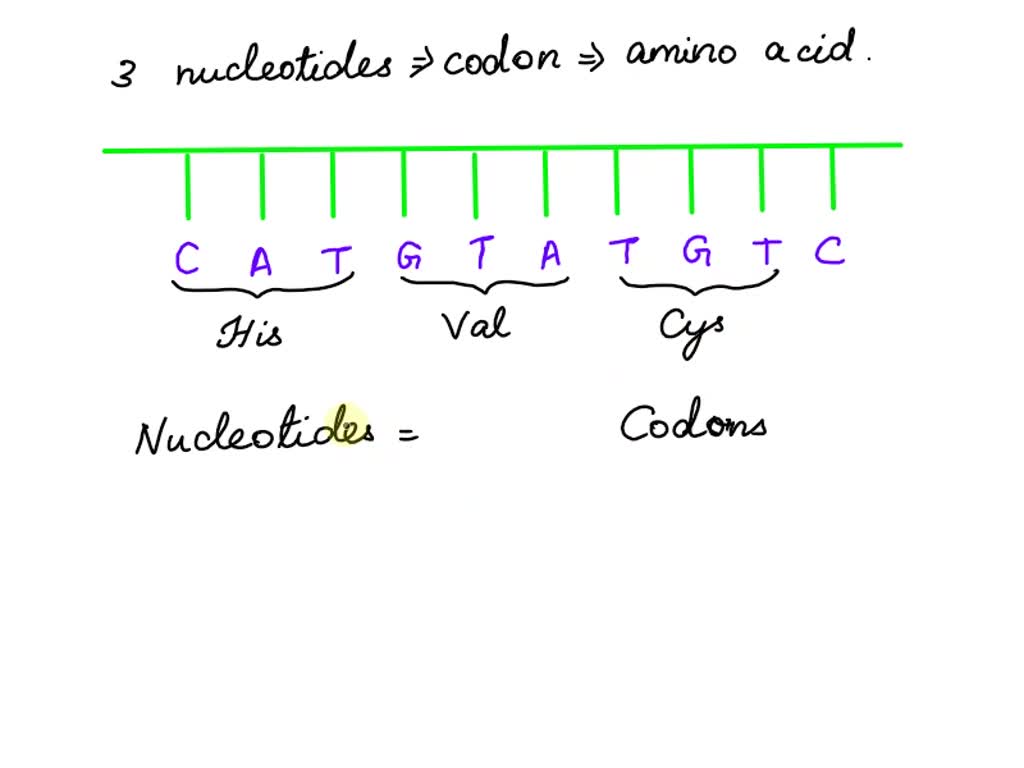 3 nucleotides ⇒ codon ⇒ amino acid.
C A T G T A T G T C
His Val Cys
Nucleotides = Codons